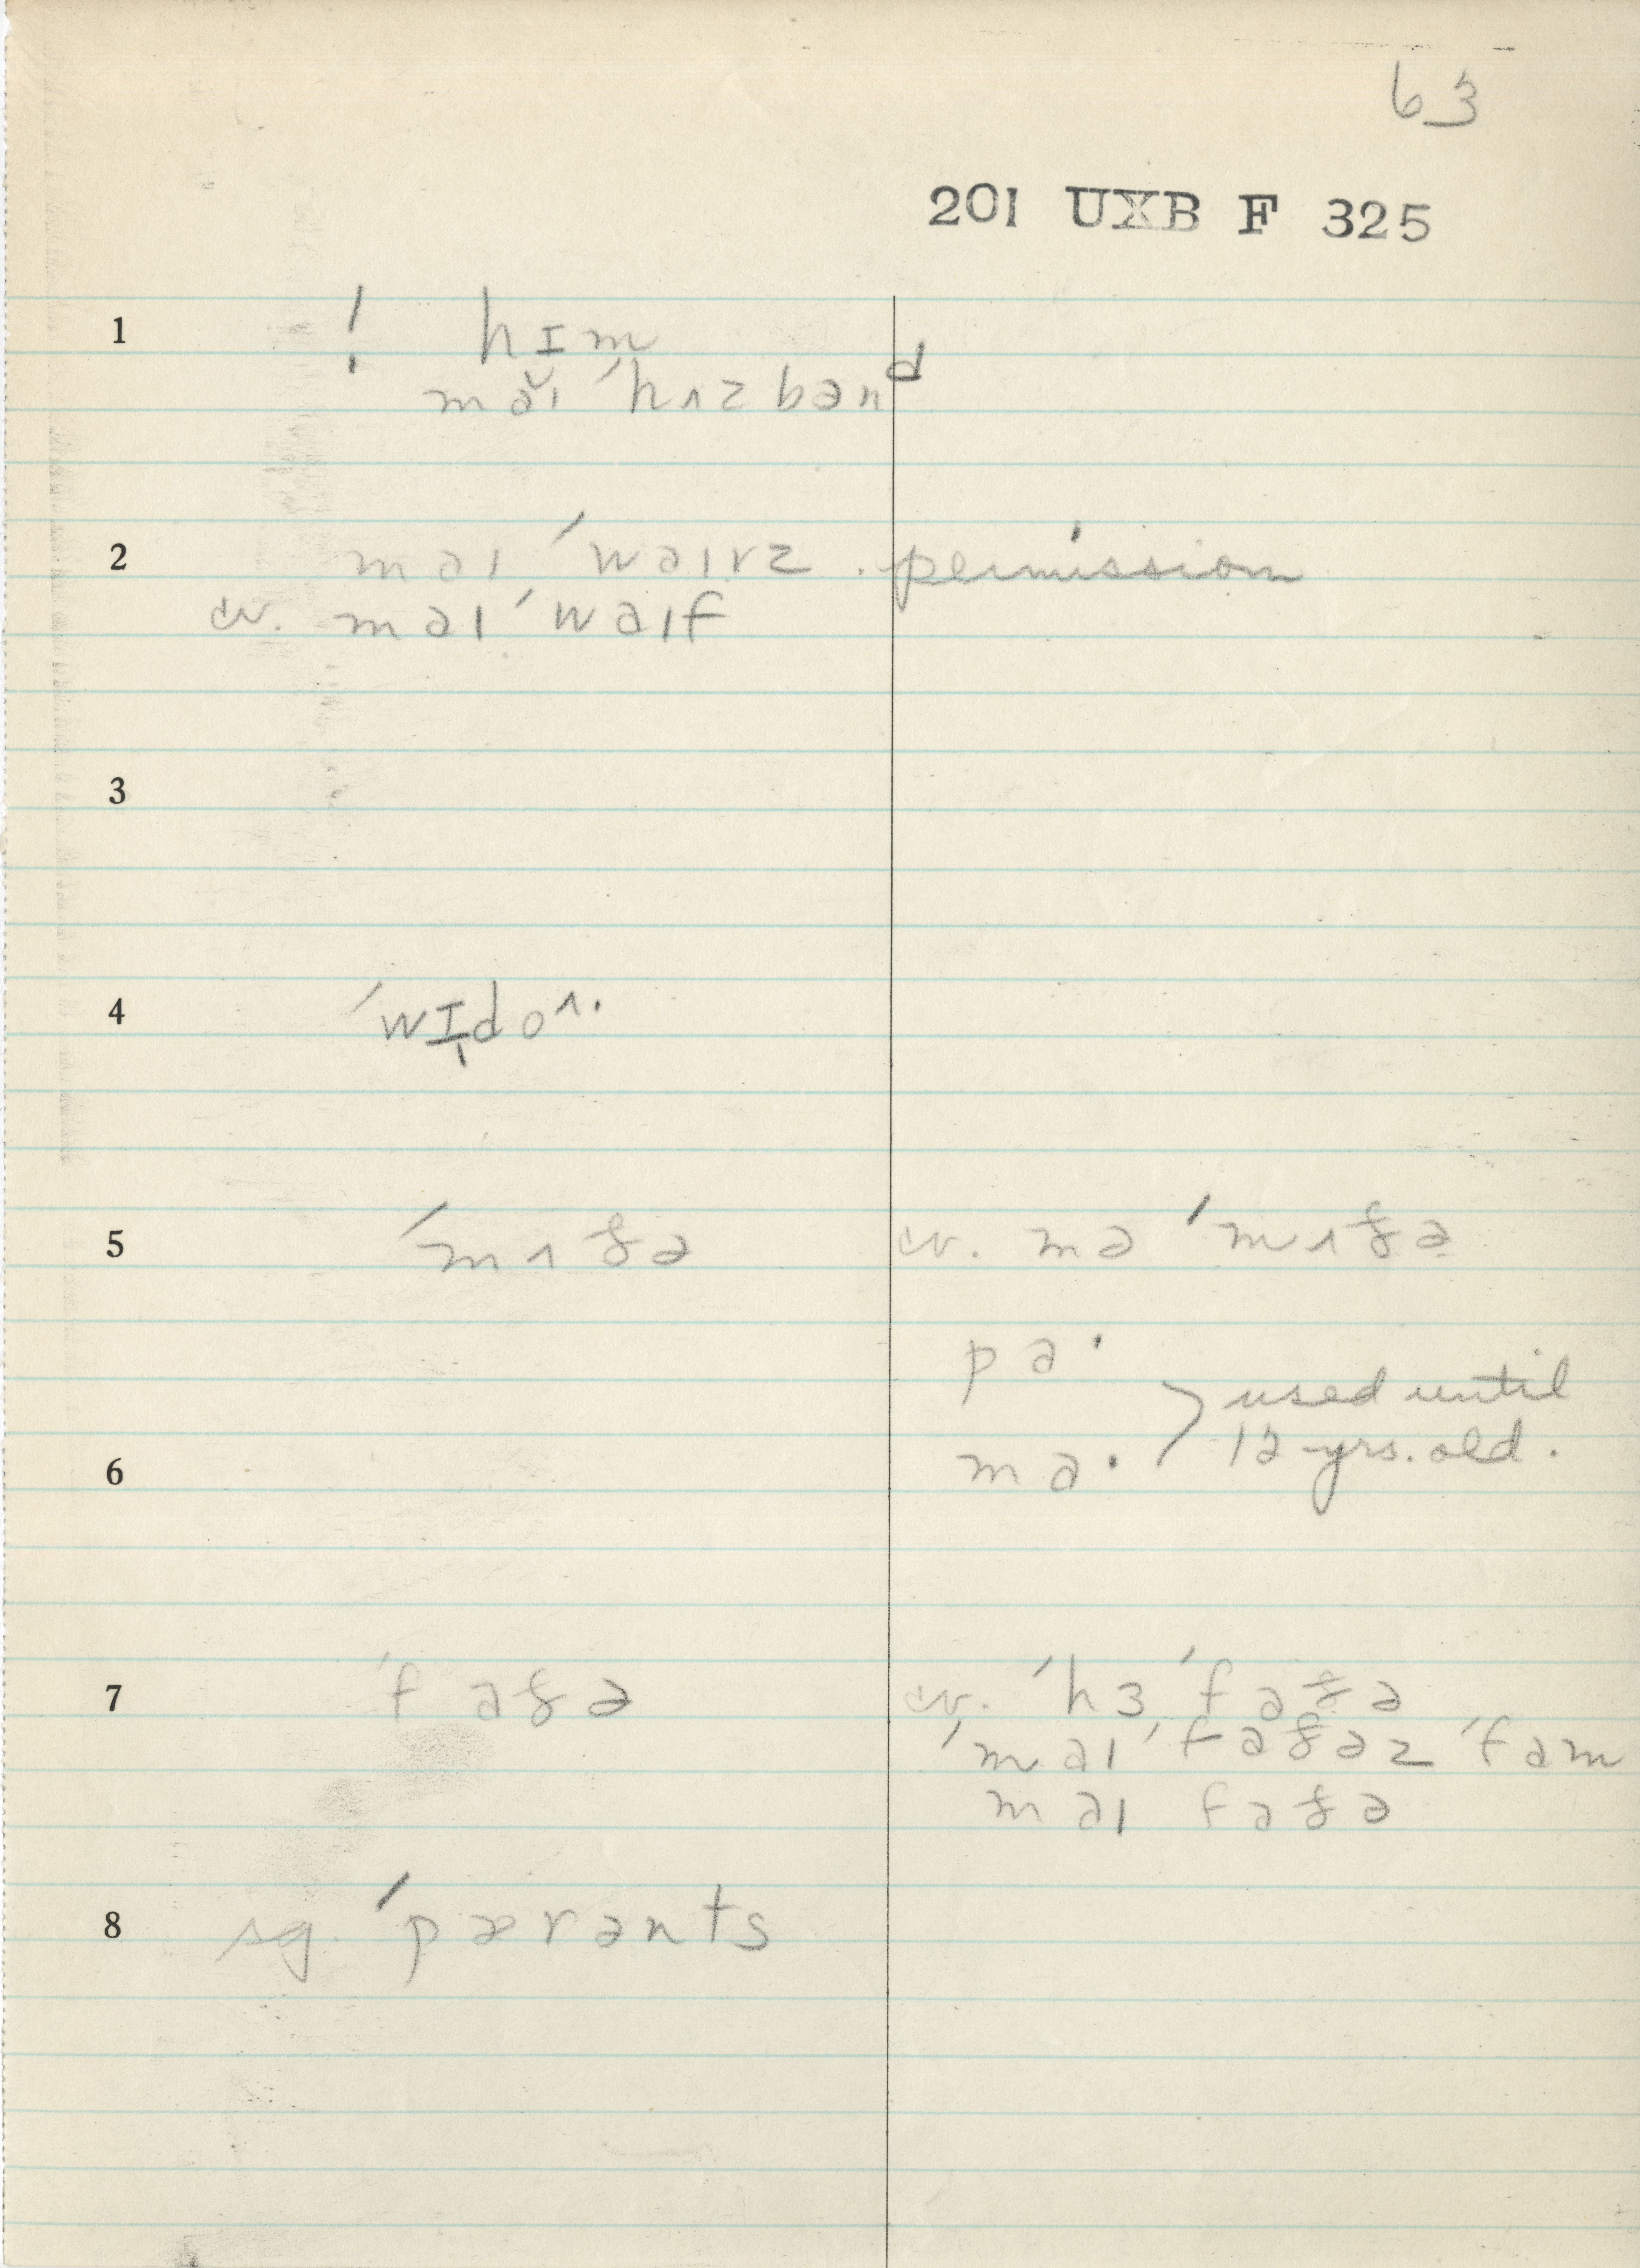 63
201 UXB F 325
1 ! hɪm
maɪ ˈhʌzbənd
2 maɪ ˈwaɪvz permission
cv. maɪ ˈwaɪf
3
4 ˈwɪdoʌ.
5 ˈmʌðə cv. mə ˈmʌðə
pa·
used until
12 yrs. old.
6 ma·
7 ˈfaðə cv. ˈhɜ ˈfaðə
ˈmaɪ ˈfaðəz ˈfam
maɪ faðə
8 sg. ˈpærənts